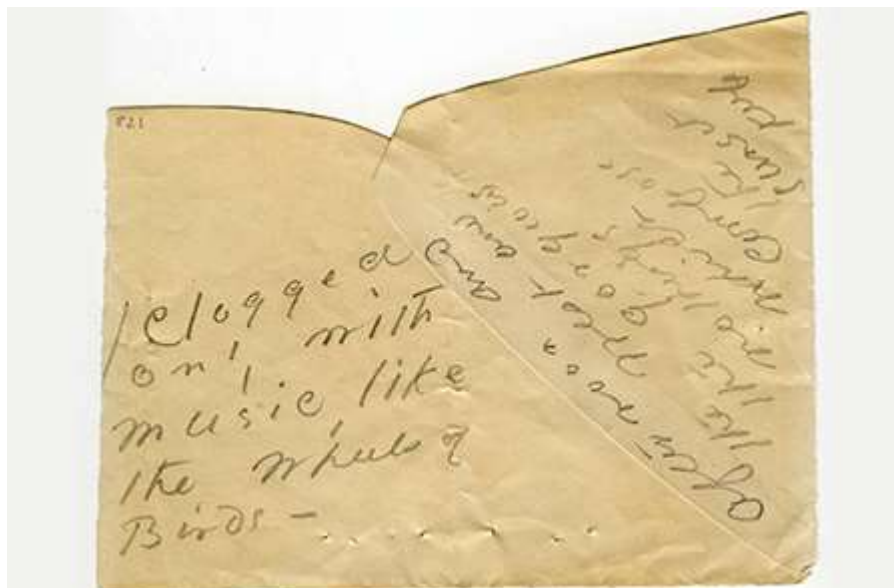 821
Clogged
only with
music, like
the Wheels of
Birds –
Afternoon and
the West and
the gorgeous
nothings
which
compose
the
sunset
keep